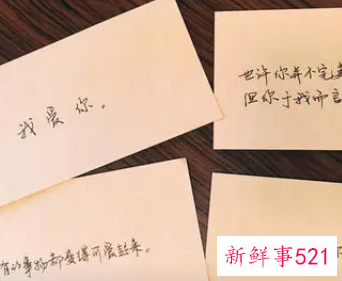 我爱你。
也许你并不完美
但你于我而言
有的事物都变得可爱起来。
新鲜事521